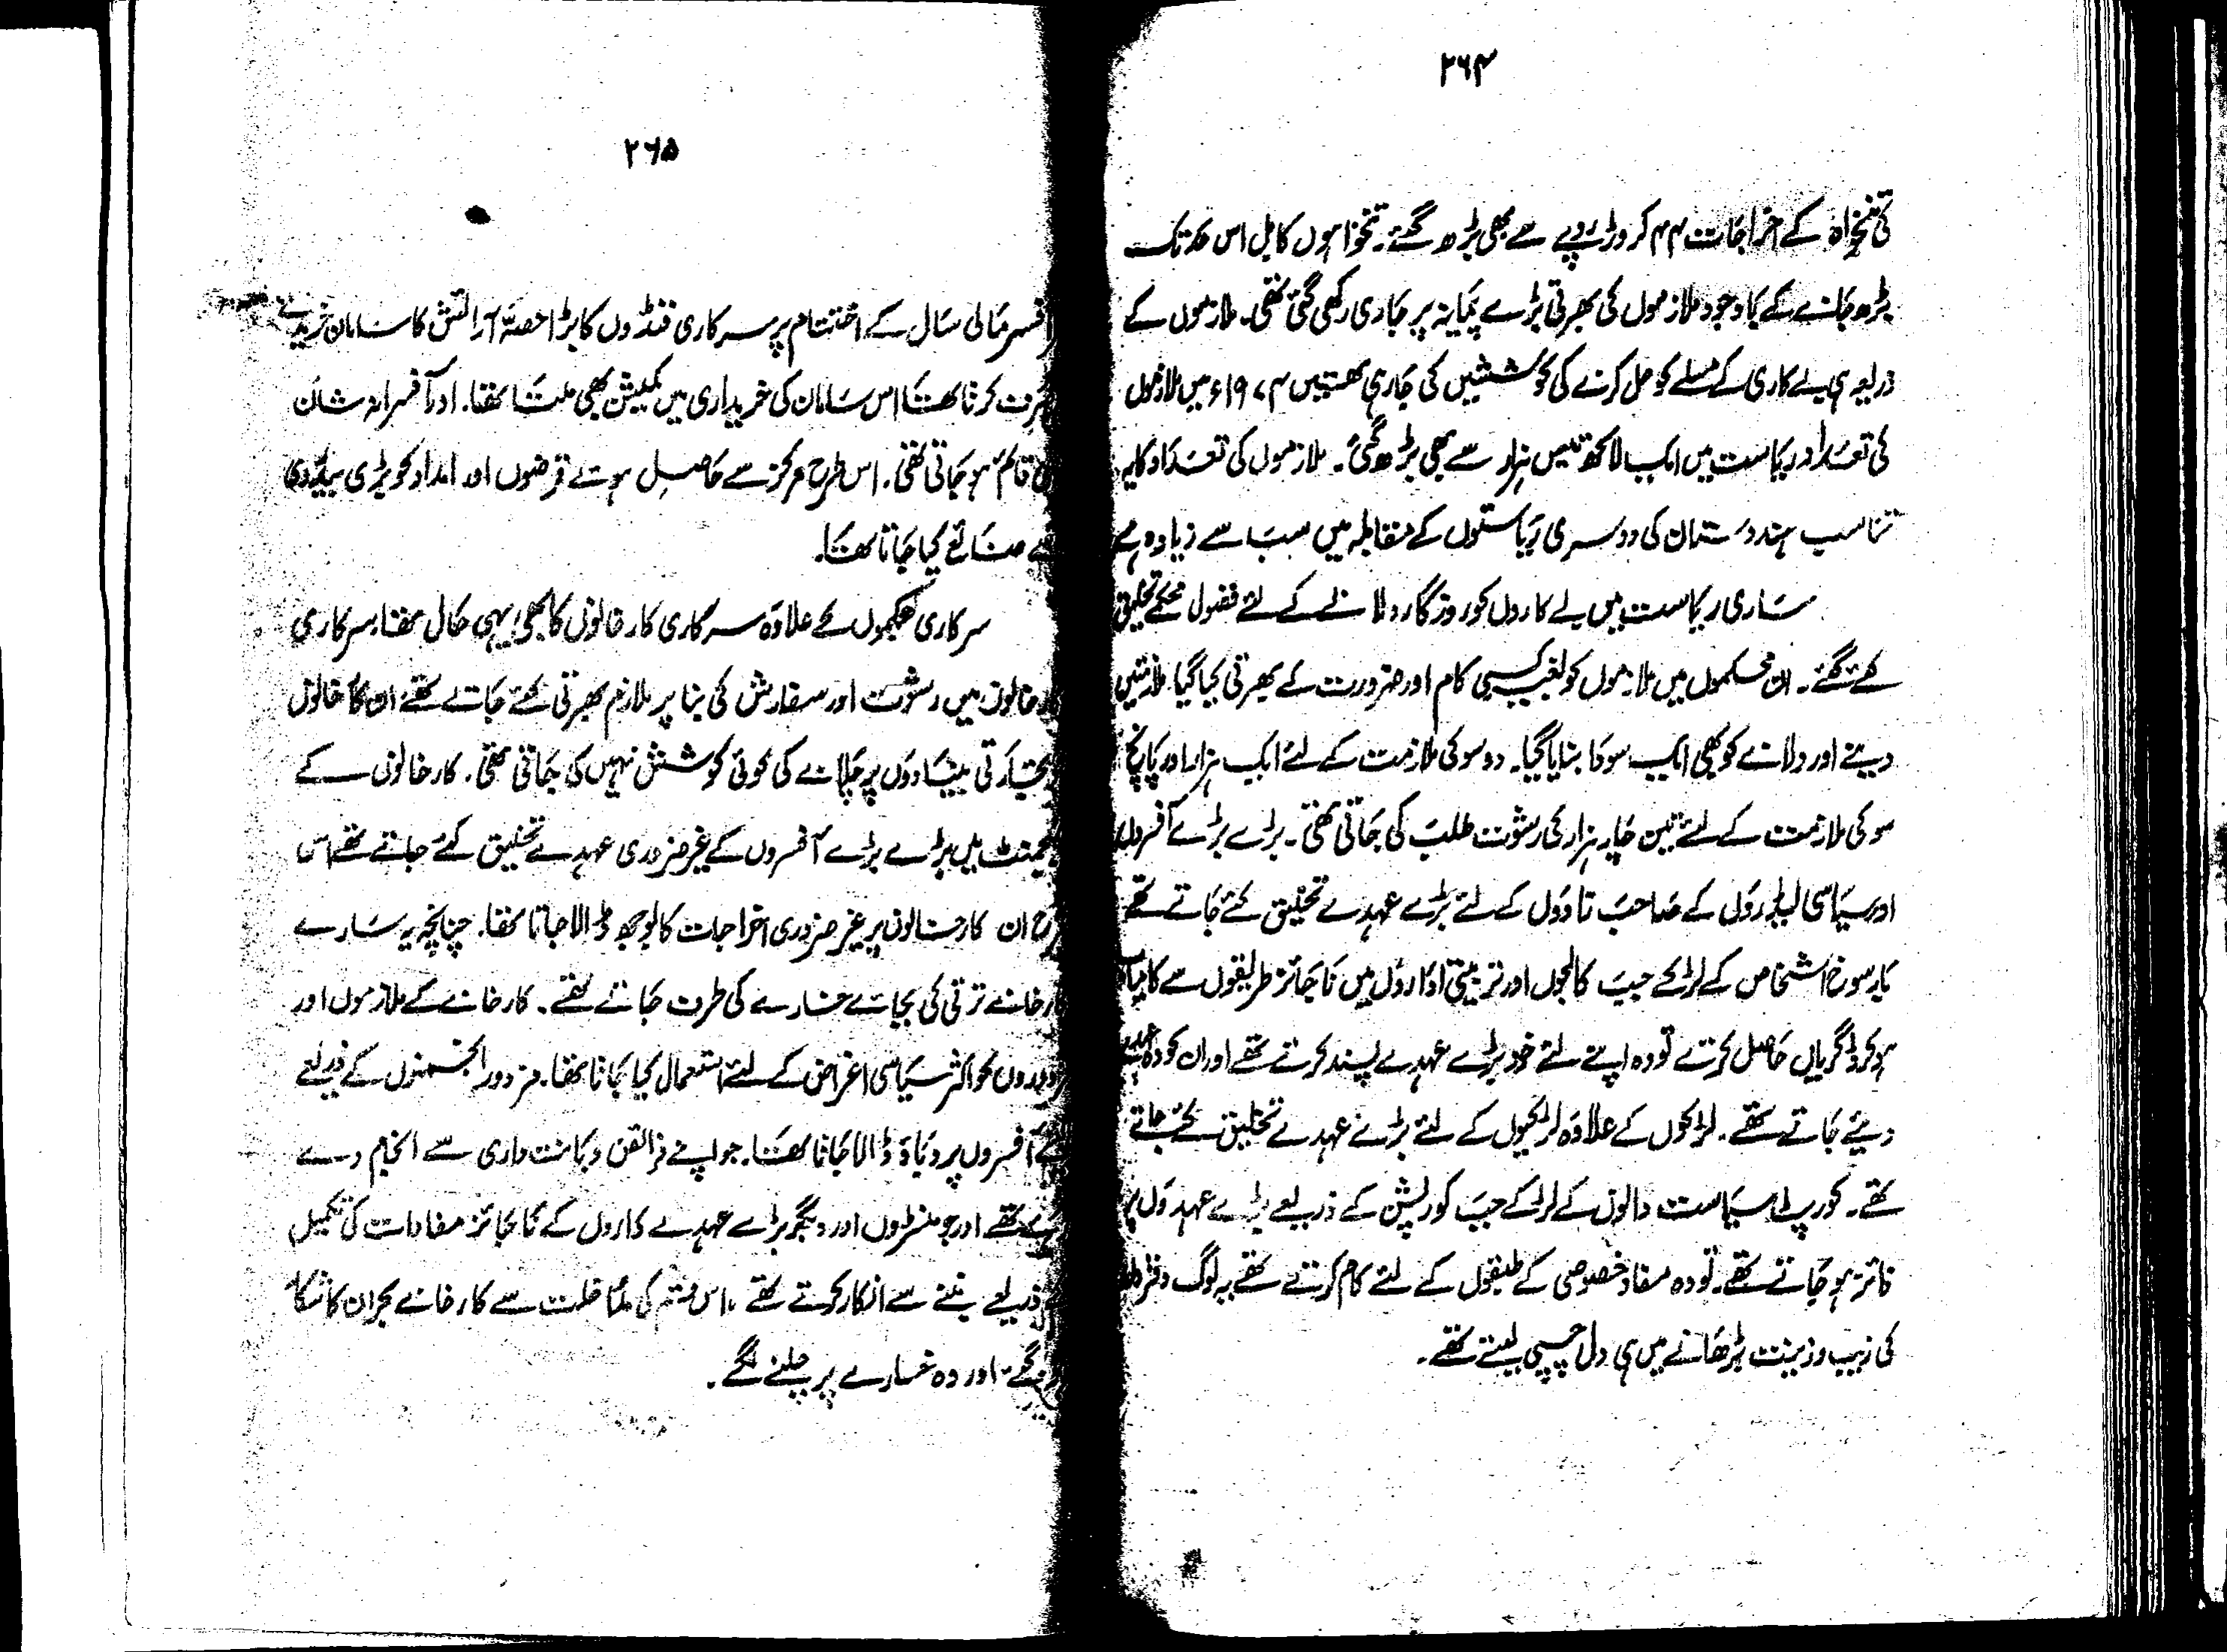 ۲۶۴
کی تنخواہ کے اخراجات ۴۴ کروڑ روپے سے بھی بڑھ گئے۔ تنخواہوں کا بل اس حد تک
بڑھ جانے کے باوجود ملازموں کی بھرتی بڑے پیمانہ پر جاری رکھی گئی تھی۔ ملازموں کے
ذریعہ ہی بے کاری کے مسلے کو حل کرنے کی کوششیں کی جاری تھیں ۱۹۷۴ء میں ملازموں
کی تعداد ریاست میں ایک لاکھ تیس ہزار سے بھی بڑھ گئی۔ ملازموں کی تعداد کا یہ
تناسب ہندوستان کی دوسری ریاستوں کے مقابلہ میں سب سے زیادہ ہے
ساری ریاست میں بے کاروں کو روزگار دلانے کے لئے فضول محکمے تخلیق
کئے گئے۔ ان محکموں میں ملازموں کو بغیر کسی کام اور ضرورت کے بھرتی کیا گیا ملازمتیں
دینے اور دلانے کو بھی ایک سودا بنایا گیا۔ دو سو کی ملازمت کے لئے ایک ہزار اور پانچ
سو کی ملازمت کے لئے تین چار ہزار کی رشوت طلب کی جاتی تھی۔ بڑے بڑے آفسروں
اور سیاسی لیڈروں کے صاحب تادوں کے لئے بڑے عہدے تخلیق کئے جاتے تھے
بارسوخ اشخاص کے لڑکے جب کالجوں اور تربیتی اداروں میں ناجائز طریقوں سے کامیاب
ہو کر ڈگریاں حاصل کرتے تو وہ اپنے لئے خود بڑے عہدے پسند کرتے تھے اور ان کو وہ عہدے
دیئے جاتے تھے۔ لڑکوں کے علاوہ لڑکیوں کے لئے بڑے عہدے تخلیق کئے جاتے
تھے۔ کورپٹ سیاست دانوں کے لڑکے جب کورپشن کے ذریعے بڑے عہدوں پر
فائز ہو جاتے تھے۔ تو وہ مفاد خصوصی کے طبقوں کے لئے کام کرتے تھے یہ لوگ دفتروں
کی زیب و زینت بڑھانے میں ہی دل چسپی لیتے تھے۔
۲۶۵
افسر مالی سال کے اختتام پر سرکاری فنڈوں کا بڑا حصہ آرائش کا سامان خریدنے
صرف کرتا تھا اس سامان کی خریداری میں کمیشن بھی ملتا تھا۔ اور آفسرانہ شان
قائم ہو جاتی تھی۔ اس طرح مرکز سے حاصل ہوتے قرضوں اور امداد کو بڑی بیدردی
سے ضائع کیا جاتا تھا۔
سرکاری محکموں کے علاوہ سرکاری کارخانوں کا بھی یہی حال تھا۔ سرکاری
کارخانوں میں رشوت اور سفارش کی بنا پر ملازم بھرتی کئے جاتے تھے ان کارخانوں
تجارتی بنیادوں پر چلانے کی کوئی کوشش نہیں کی جاتی تھی۔ کارخانوں کے
میجمنٹ میں بڑے بڑے آفسروں کے غیر ضروری عہدے تخلیق کئے جاتے تھے اس
طرح ان کارخانوں پر غیر ضروری اخراجات کا بوجھ ڈالا جاتا تھا۔ چنانچہ یہ سارے
کارخانے ترقی کی بجائے خسارے کی طرف جاتے تھے۔ کارخانے کے ملازموں اور
مزدوروں کو اکثر سیاسی اغراض کے لئے استعمال کیا جاتا تھا۔ مزدور انجمنوں کے ذریعے
آفسروں پر دباؤ ڈالا جاتا تھا۔ جو اپنے فرائض دیانت داری سے انجام دے
رہے تھے اور جو منسٹروں اور دیگر بڑے عہدے داروں کے ناجائز مفادات کی تکمیل
ذریعے بننے سے انکار کرتے تھے، اس قسم کی مداخلت سے کارخانے بحران کا شکار
ہو گئے اور وہ خسارے پر چلنے لگے۔